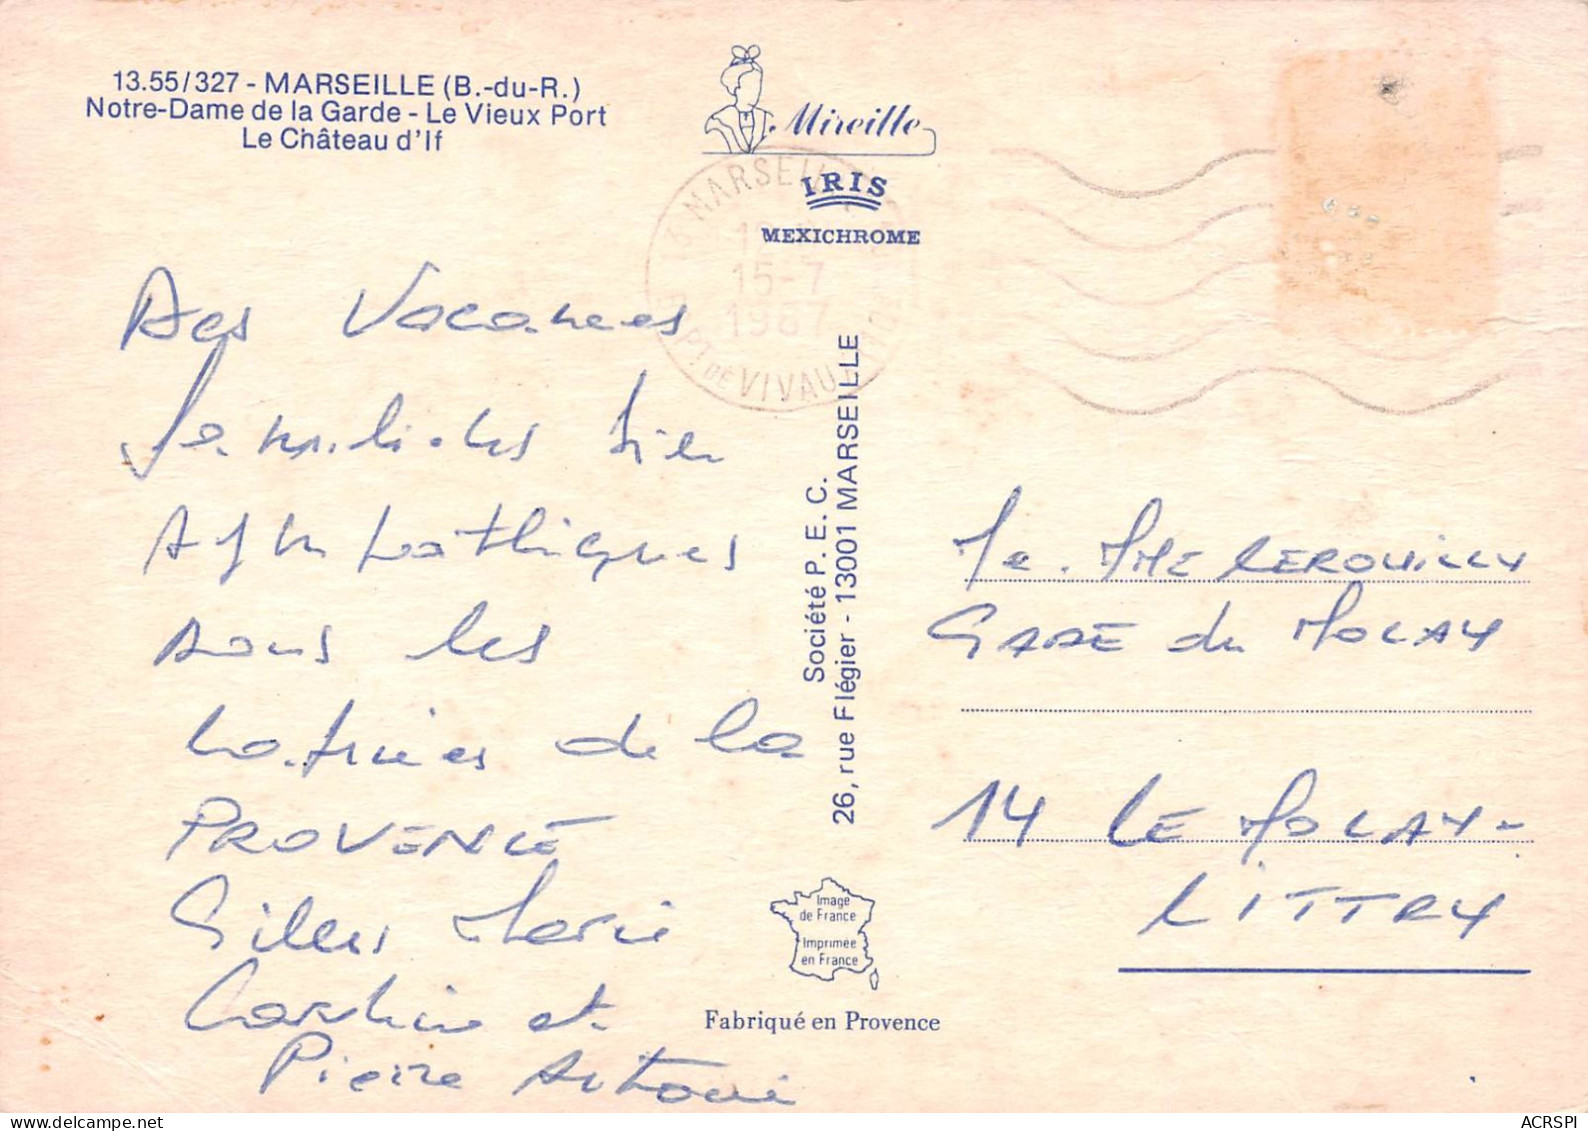 13.55/327 - MARSEILLE (B.-du-R.)
Notre-Dame de la Garde - Le Vieux Port
Le Château d'If
Mireille
IRIS
MEXICHROME
MARSEILLE
15-7
1987
VIVAUX
Des Vacances
familiales bien
sympathiques
sous les
de la
PROVENCE
Gilles Marie
et
Pierre Antoine
Société P.E.C.
26, rue Flégier - 13001 MARSEILLE
Image
de France
Imprimée
en France
Fabriqué en Provence
Me. MME LEROUILLY
GARE du MOLAY
14 LE MOLAY-
LITTRY
ACRSPI